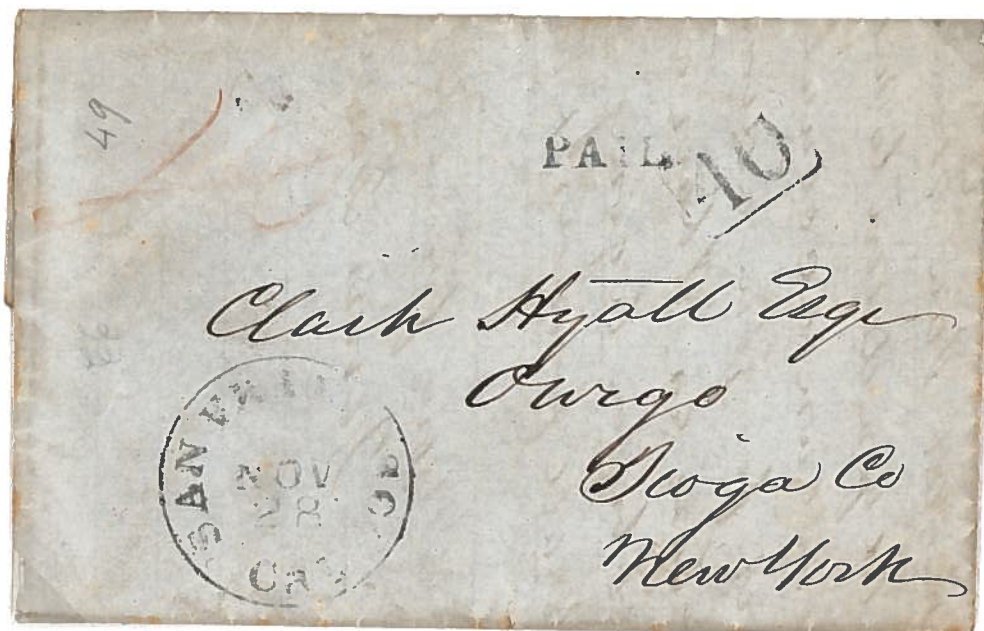 49
PAID
40
Clark Hyatt Esqr
Owego
Tioga Co
New York
SAN FRANCISCO
NOV
28
Cal